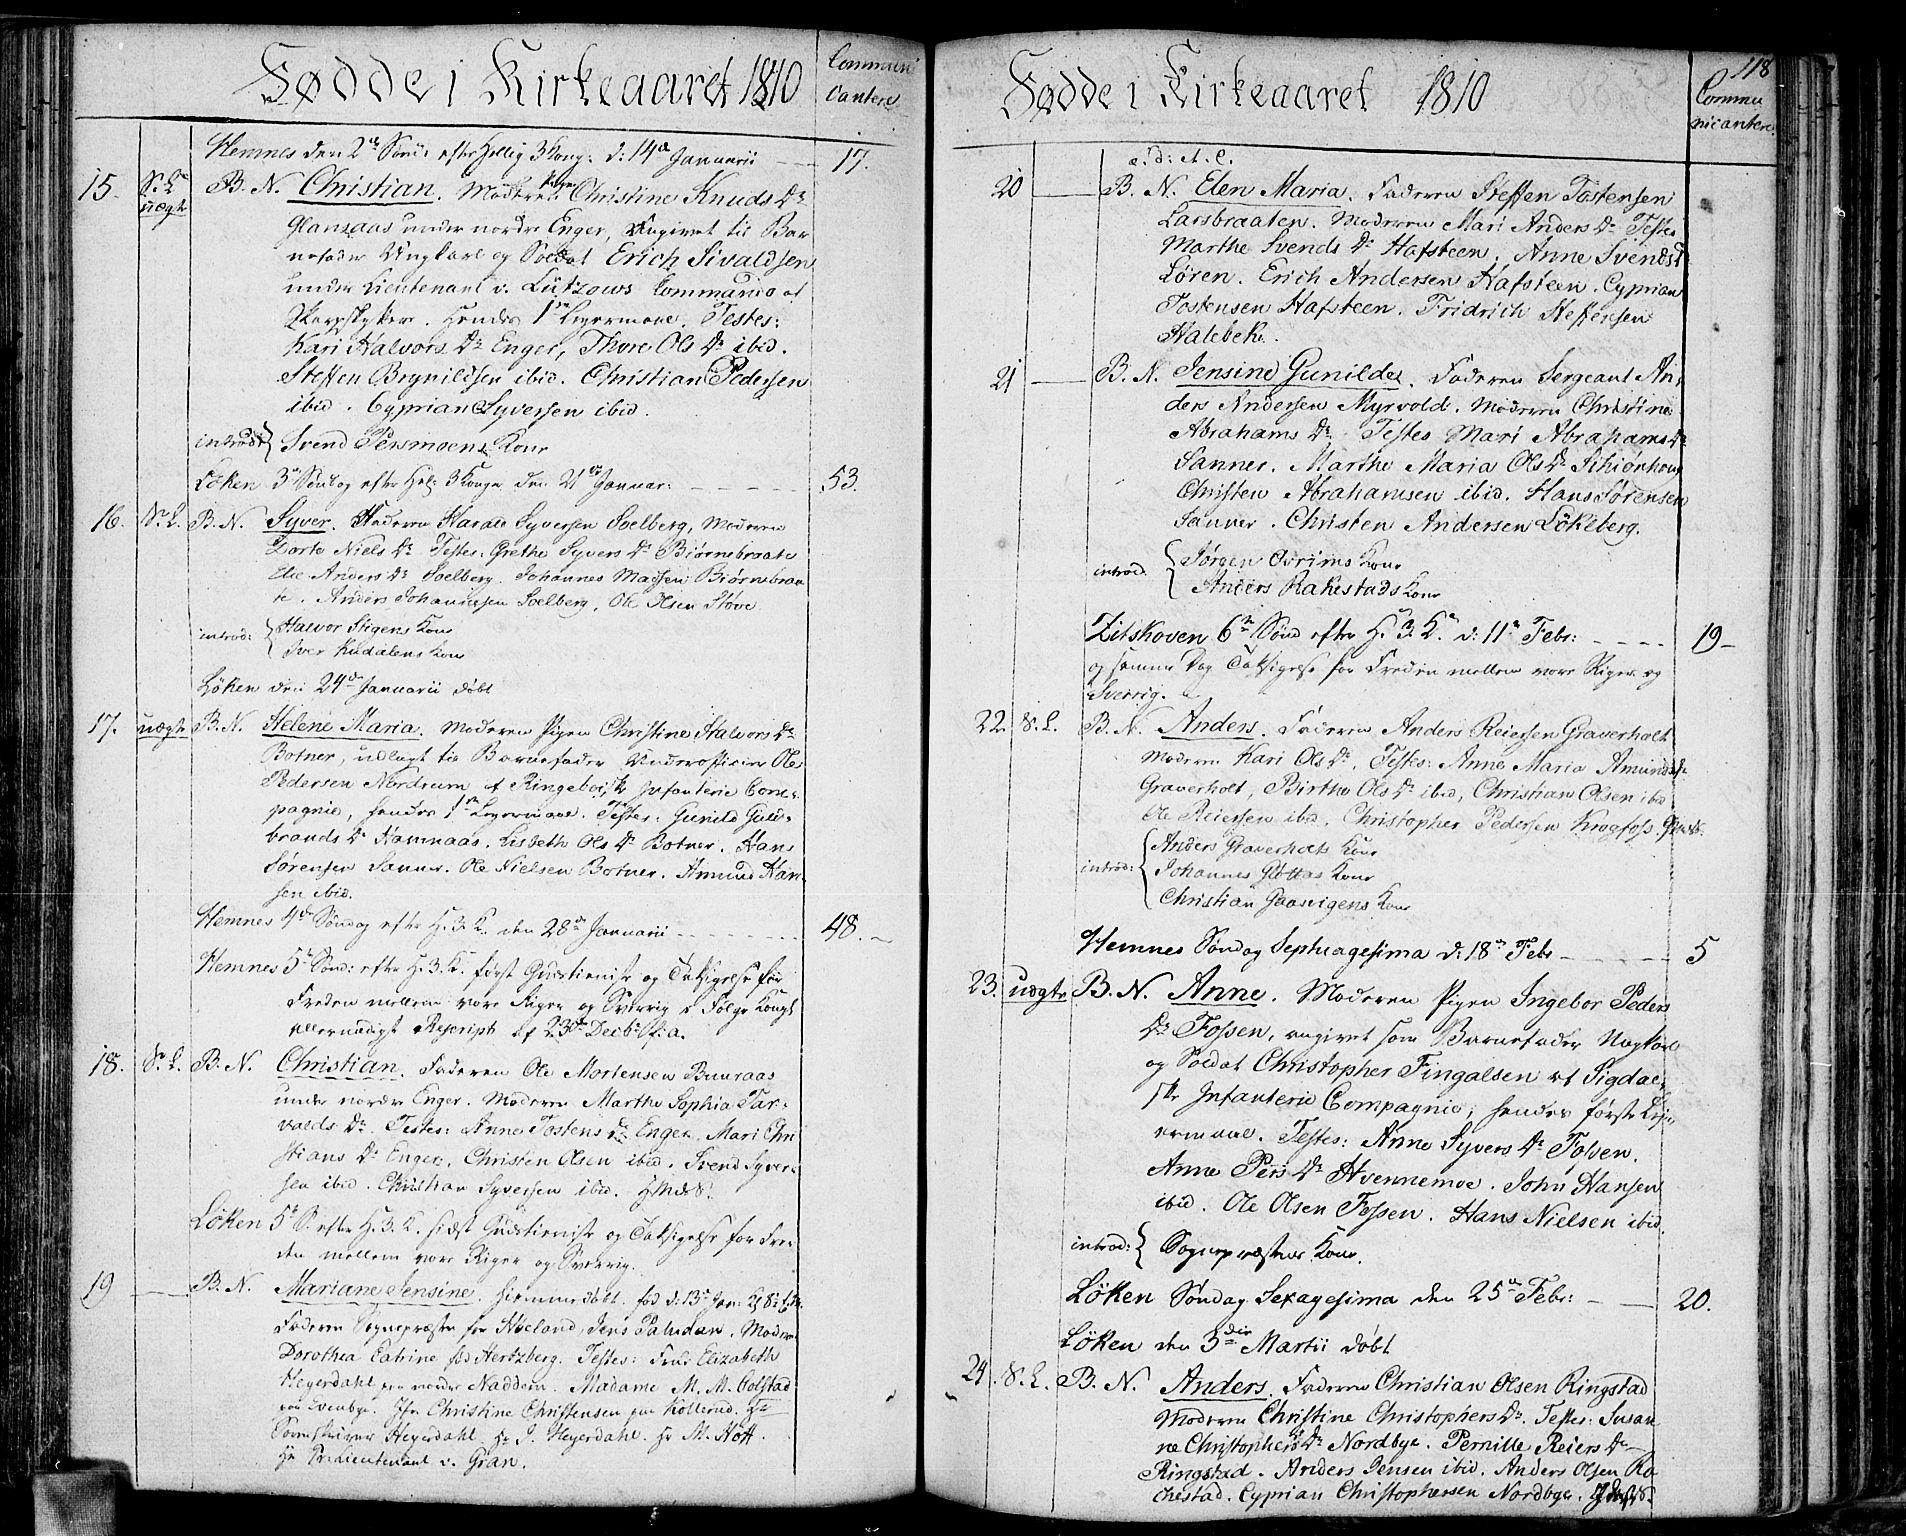 Fødde i Kirkeaaret 1810
Communi
cantere
Hemnes den 2den Sønd: efter Hellig 3 Kong: d: 14de Januarii 17.
15. S. L. uægte B. N. Christian. Moderen Pigen Christine Knuds Dr
Glansaas under nordre Enger, Angivet til Bar
nefader Ungkarl og Soldat Erich Sivaldsen
under Lieutenant v. Lützows Commando af
Skarpskytter. Hendes 1ste Leyermaal. Testes:
Kari Halvors Dr Enger, Thore Ols Dr ibid.
Steffen Brynildsen ibid. Christian Pedersen
ibid. Cyprian Syversen ibid.
introd: Svend Persmoens Kone
Löken 3die Søndag efter Hel: 3 Konger den 21de Januar: 53.
16. S. L. B. N. Syver. Faderen Harald Syversen Soelberg, Moderen
Dorte Niels Dr Testes: Grethe Syvers Dr Biørnebraate
Elie Anders Dr Soelberg. Johannes Madsen Biørnebraa
te. Anders Johannesen Soelberg, Ole Olsen Støve
introd: Halvor Stigens Kone
Iver Kudalens Kone
Löken den 24de Januarii döbt
17. uægte B. N. Helene Maria. Moderen Pigen Christine Halvors Dr
Botner, udlagt til Barnefader Underofficier Ole
Pedersen Nordrum af Ringeboeske Infanterie Com-
pagnie, hendes 1ste Leyermaal. Testes: Gunild Guld-
brands Dr Hamnaas. Lisbeth Ols Dr Botner. Hans
Sørensen Sanner. Ole Nielsen Botner. Amund Han-
sen ibid.
Hemnes 4de Søndag efter H. 3 K. den 28de Januarii 48.
Hemnes 5te Sønd: efter H. 3. K. først Gudstieniste og Taksigelse for
Freden mellem vore Riger og Sverrig i Følge Kongl
allernadigst Rescript af 23de Decbr f: a.
18. S. L. B. N. Christian. Faderen Ole Mortensen Buuraas
under nordre Enger. Moderen Marthe Sophia Tar-
valds Dr. Testes: Anne Tostens Dr Enger. Mari Chri
stians Dr Enger. Christen Olsen ibid. Svend Syver-
sen ibid. Christian Syversen ibid.
Löken 5te S. efter H. 3. K. sidst Gudstieniste og Taksigelse for Fre-
den mellem vore Riger og Sverrig.
19 B. N. Mariane Jensine. hiemmedöbt. fød d: 13de Jan:
Faderen Sognepræsten for Høeland, Jens Paludan. Moder
Dorothea Catrine fød Hertzberg. Testes: Frue Elizabeth
Heyerdahl paa nordre Naddum. Madame M. M. Colstad
paa Evenbye. Jfr Christine Christensen paa Kollerud. Hr
Sorenskriver Heyerdahl. Hr J. Heyerdahl. Hr M. Hoff.
Hr Premierlieutenant v. Gran.
Fødde i Kirkeaaret 1810
118
Commu
nicantere
a: d: A. C.
20 B. N. Elen Maria. Faderen Steffen Tostensen
Larsbraaten. Moderen Mari Anders Dr Testes
Marthe Svends Dr Hafsteen. Anne Svends D
Lören. Erich Andersen Hafsteen. Cyprian
Tostensen Hafsteen. Fridrich Steffensen
Halebek.
21 B. N. Jensine Gunilde. Faderen Sergeant An-
ders Andersen Myrvold. Moderen Christine
Abrahams Dr. Testes Mari Abrahams Dr
Sanner. Marthe Maria Ols Dr Schiönhoug
Christen Abrahamsen ibid. Hans Sørensen
Sanner. Christen Andersen Lökeberg.
introd. Jørgen Ovrims Kone
Anders Rakestads Kone
Zitskoven 6te Sønd efter H. 3. K. d: 11te Febr: 19
og samme Dag Taksigelse for Freden mellem vore Riger og
Sverrig.
22. S. L. B. N. Anders. Faderen Anders Reiersen Graverholt
Moderen Kari Ols Dr, Testes: Anne Maria Amunds Dr
Graverholt, Birthe Ols Dr ibid, Christian Olsen ibid
Ole Reiersen ibid. Christopher Pedersen Krogfoss.
introd: Anders Graverholts Kone
Johannes Gløttas Kone
Christian Gaasvigens Kone
Hemnes Søndag Septuagesima d: 18de Febr 5
23. uægte B. N. Anne. Moderen Pigen Ingebor Peders
Dr Fossen, angivet som Barnefader Ungkarl
og Soldat Christopher Fingalsen af Sigdal-
ske Infanterie Compagnie, hendes første Ley-
ermaal. Testes: Anne Syvers Dr Fossen.
Anne Pers Dr Hvennemoe. John Hansen
ibid. Ole Olsen Fossen. Hans Nielsen ibid.
introd: Sognepræstens Kone.
Löken Søndag Sexagesima den 25de Febr: 20.
Löken den 3die Martii döbt
24. S. L. B. N. Anders. Faderen Christian Olsen Ringstad
Moderen Christine Christophers Dr. Testes: Susan
ne Christophers Dr Nordbye. Pernille Reiers Dr
Ringstad. Anders Jensen ibid. Anders Olsen Ra
chestad. Cyprian Christophersen Nordbye.